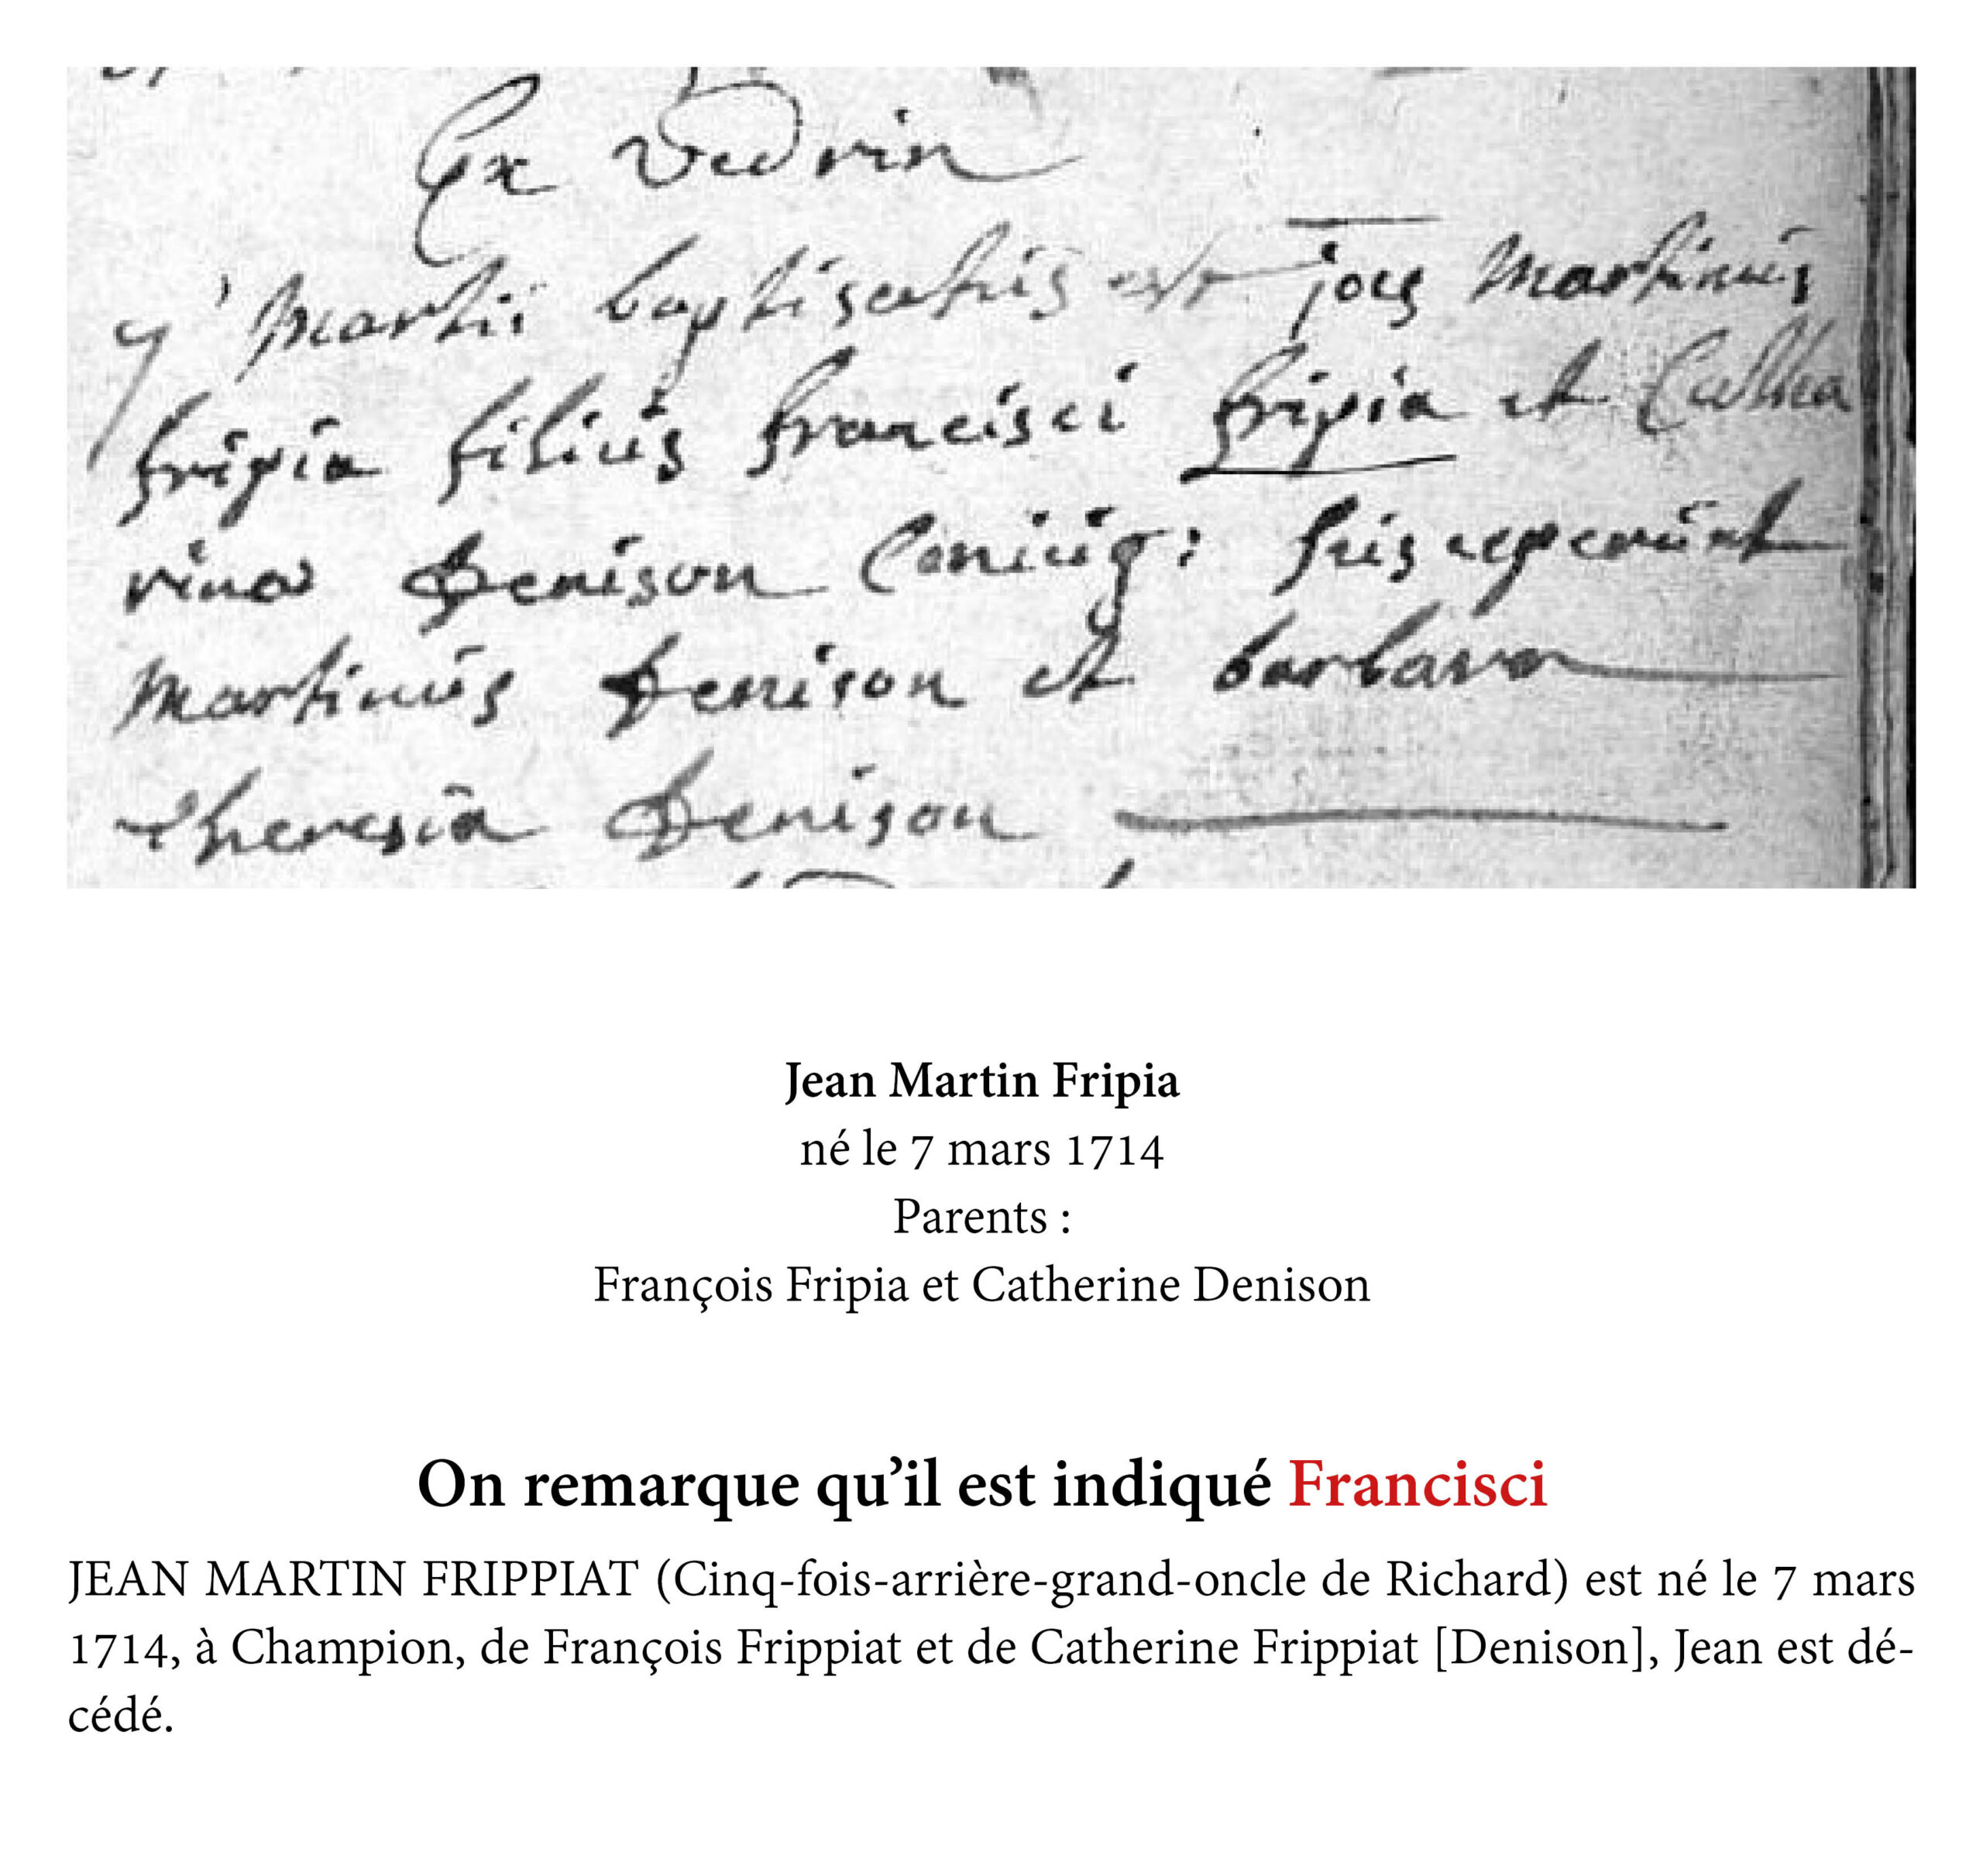 Ex Vedrin
7 Martii baptisatus est joes Martinus
fripia filius francisci fripia et Catha
rina Denison Coniug: Susceperunt
Martinus Denison et barbara
theresia Denison
Jean Martin Fripia
né le 7 mars 1714
Parents :
François Fripia et Catherine Denison
On remarque qu’il est indiqué Francisci
JEAN MARTIN FRIPPIAT (Cinq-fois-arrière-grand-oncle de Richard) est né le 7 mars
1714, à Champion, de François Frippiat et de Catherine Frippiat [Denison], Jean est dé-
cédé.